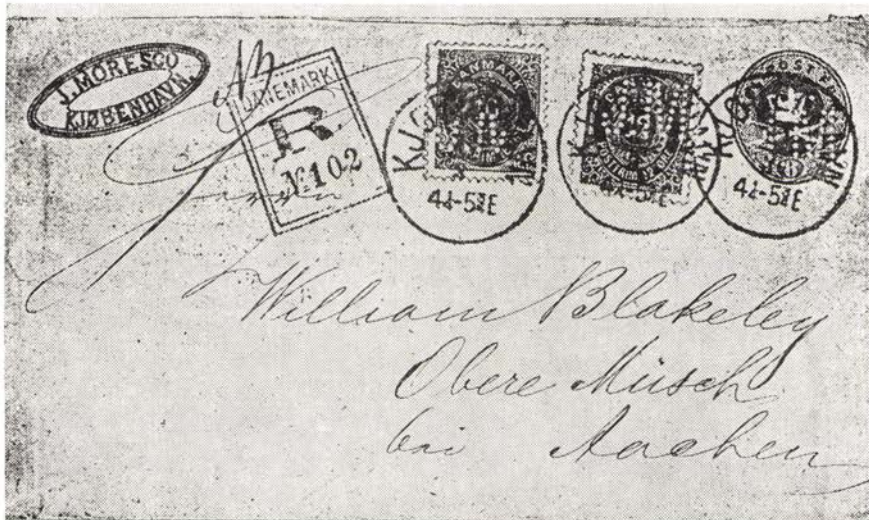 J. MORESCO
KJØBENHAVN.
DANEMARK
R
№ 102
DANMARK
4½-5½E
4½-5½E
4½-5½E
William Blakeley
Obere Müsch
bei Aachen